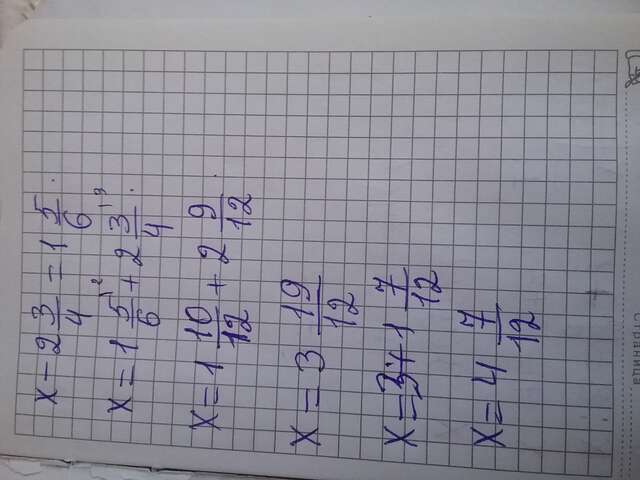 x - 2 3/4 = 1 5/6
x = 1 5/6 ^2 + 2 3/4 ^3
x = 1 10/12 + 2 9/12
x = 3 19/12
x = 3 + 1 7/12
x = 4 7/12
Страница